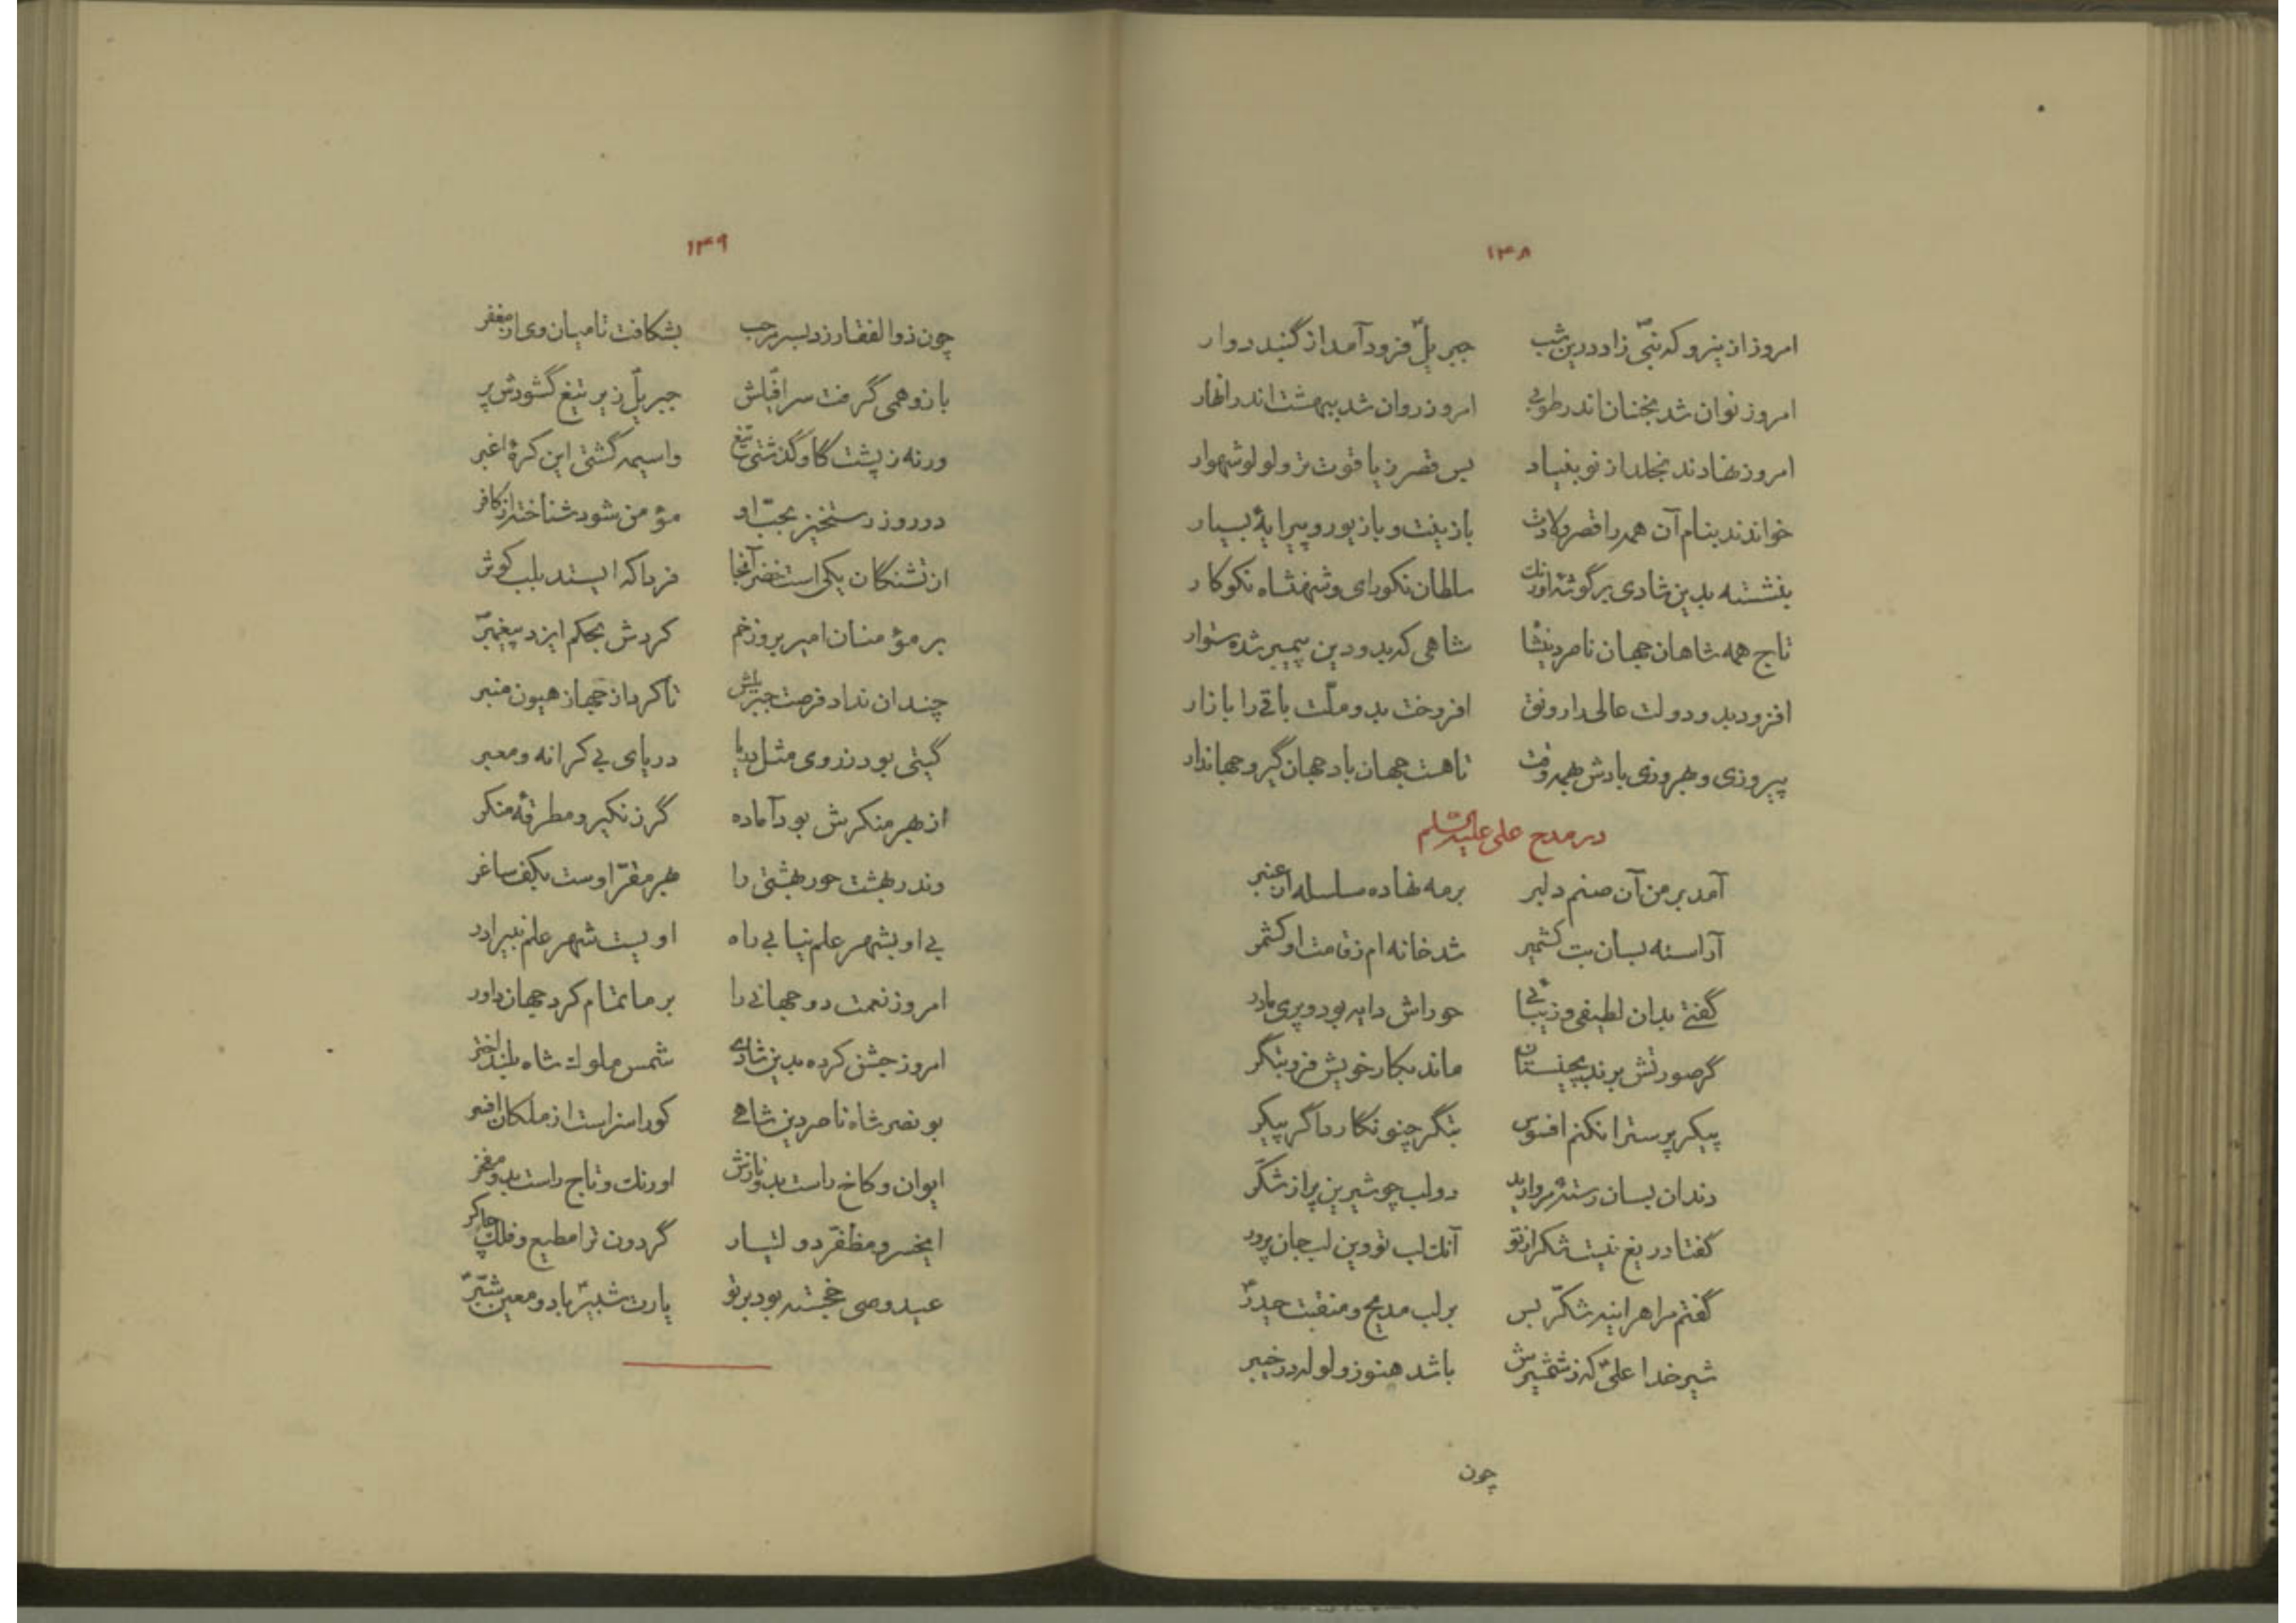 ۱۳۸
امروز از ینرو که نبی زاد درین شب جبریل فرود آمد از گنبد دوار
امروز نوان شد بجنان اندر طوبی امروز روان شد ببهشت اندر انهار
امروز نهادند بخلد از نو بنیاد بس قصر ز یاقوت تر و لولو شهوار
خواندند بنام آن همه را قصر ولادت با زینت و با زیور و پیرایهٔ بسیار
بنشسته بدین شادی بر گوشهٔ اورنك سلطان نکورای و شهنشاه نکوکار
تاج همه شاهان جهان ناصردین شا شاهی که بدو دین پیمبر شده ستوار
افزود بدو دولت عالی را رونق افروخت بدو ملّت باقی را بازار
پیروزی و بهروزی بادش بهمه وقت تا هست جهان باد جهانگیر و جهاندار
در مدح علی علیه السلم
آمد بر من آن صنم دلبر بر مه نهاده سلسله از عنبر
آراسته بسان بت کشمیر شد خانه ام ز قامت او کشمر
گفتی بدان لطیفی و زیبائی حوراش دایه بود و پری مادر
گر صورتش برند بچینستان ماند بکار خویش فرو بتگر
پیکر پرست را نکنم افسوس بتگر چنو نگارد اگر پیکر
دندان بسان رستهٔ مروارید دو لب چو شیرین پر از شکّر
گفتا دریغ نیست شکر از تو آنك لب تو وین لب جان پرور
گفتم مرا هر اینه شکّر بس بر لب مدیح و منقبت حیدر
شیر خدا علی که ز شمشیرش باشد هنوز ولوله در خیبر
چون
۱۳۹
چون ذوالفقار زد بسر مرحب بشکافت تا میان وی از مغفر
بازو همی گرفت سرافیلش جبریل زیر تیغ گشودش پر
ورنه ز پشت گاو گذشتی تیغ واسیمه گشتی این کرهٔ اغبر
در روز رستخیز بحبّ او مؤمن شود شناخته از کافر
از تشنگان یکی است خضر آنجا فردا که ایستد بلب کوثر
بر مؤمنان امیر بروز خم کردش بحکم ایزد پیغمبر
چندان نداد فرصت جبریلش تا کرد از جهاز هیون منبر
گیتی بود ز روی مثل دریا دریای بی کرانه و معبر
از بهر منکرش بود آماده گرز نکیر و مطرقهٔ منکر
وندر بهشت حور بهشتی را بهر مقرّ اوست بکف ساغر
بی او بشهر علم نیابی راه اویست شهر علم نبی را در
امروز نعمت دو جهانی را بر ما تمام کرد جهان داور
امروز جشن کرده بدین شادی شمس ملوك شاه بلند اختر
بو نصر شاه ناصردین شاهی کورا سزاست از ملکان افسر
ایوان و کاخ راست بدو نازش اورنك و تاج راست بدو مفخر
ایخسرو مظفّر دولتیار گردون ترا مطیع و فلك چاکر
عید وصی خجسته بود بر تو یارت شبیر باد و معین شبّر